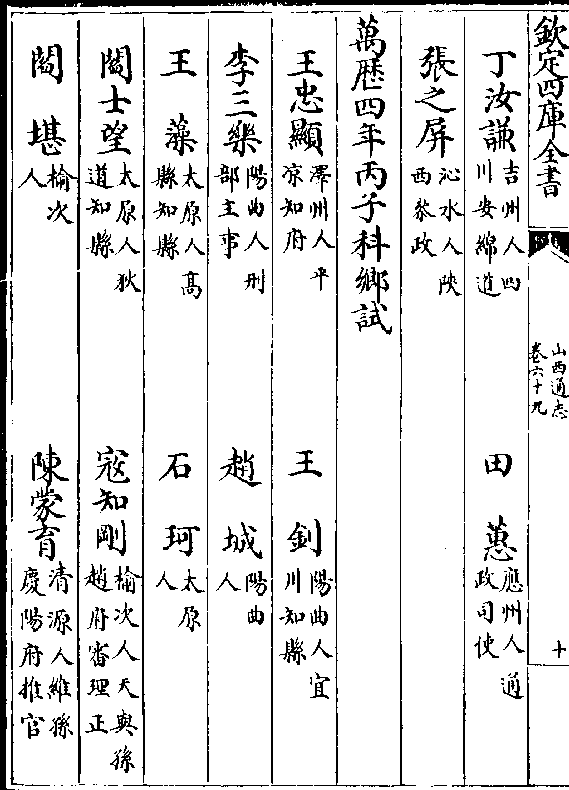 欽定四庫全書
山西通志
卷六十九
十
丁汝謙 吉州人四川安綿道
田蕙 應州人通政司使
張之屏 沁水人陜西叅政
萬歷四年丙子科鄉試
王忠顯 澤州人平凉知府
王釗 陽曲人宜川知縣
李三樂 陽曲人刑部主事
趙城 陽曲人
王藻 太原人高縣知縣
石珂 太原人
閻士望 太原人狄道知縣
寇知剛 榆次人天與孫趙府審理正
閻堪 榆次人
陳蒙育 清源人維孫慶陽府推官